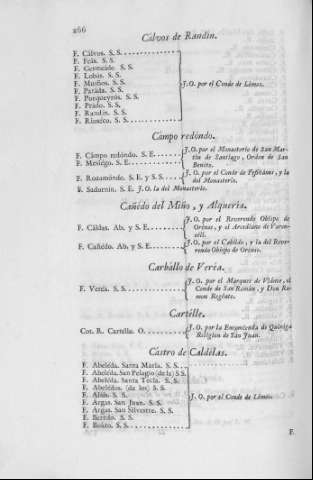 266
Cálvos de Randín.
F. Cálvos. S. S.
F. Feás. S. S.
F. Germeáde. S. S.
F. Lobás. S. S.
F. Muíños. S. S.
F. Paráda. S. S.
F. Porqueyrós. S. S.
F. Prádo. S. S.
F. Randín. S. S.
F. Rioséco. S. S.
J. O. por el Conde de Lémos.
Campo redóndo.
F. Cámpo redóndo. S. E.
F. Mosiégo. S. E.
J. O. por el Monasterio de San Mar-
tin de Santiago, Orden de San
Benito.
F. Rozamónde. S. E. y S. S.
J. O. por el Conde de Tefifáñes, y la
del Monasterio.
F. Sadurnín. S. E. J. O. la del Monasterio.
Cañédo del Miño, y Alquería.
F. Cáldas. Ab. y S. E.
J. O. por el Reverendo Obispo de
Orénse, y el Arcediano de Varon-
céli.
F. Cañédo. Ab. y S. E.
J. O. por el Cabildo, y la del Reve-
rendo Obispo de Orénse.
Carbállo de Veréa.
F. Veréa. S. S.
J. O. por el Marques de Viánce, el
Conde de San Román, y Don Ra-
mon
Cartélle.
Cot. R. Cartélle. O.
J. O. por la Encomienda de Quiróga
Religion de San Juan.
Cástro de Caldélas.
F. Abeléda. Santa María. S. S.
F. Abeléda. San Pelagio (de la) S. S.
F. Abeléda. Santa Tecla. S. S.
F. Abelédos. (de los) S. S.
F. Aláis. S. S.
F. Argas. San Juan. S. S.
F. Argas. San Silvestre. S. S.
F. S. S.
F. S. S.
J. O. por el Conde de Lémos.
F.